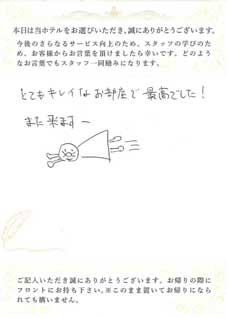 本日は当ホテルをお選びいただき、誠にありがとうございます。
今後のさらなるサービス向上のため、スタッフの学びのため、お客様からお言葉を頂けましたら幸いです。どのようなお言葉でもスタッフ一同励みになります。
とてもキレイなお部屋で最高でした！
また来ますー
ご記入いただき誠にありがとうございます。お帰りの際にフロントにお持ち下さい。※このまま置いてお帰りになられても構いません。